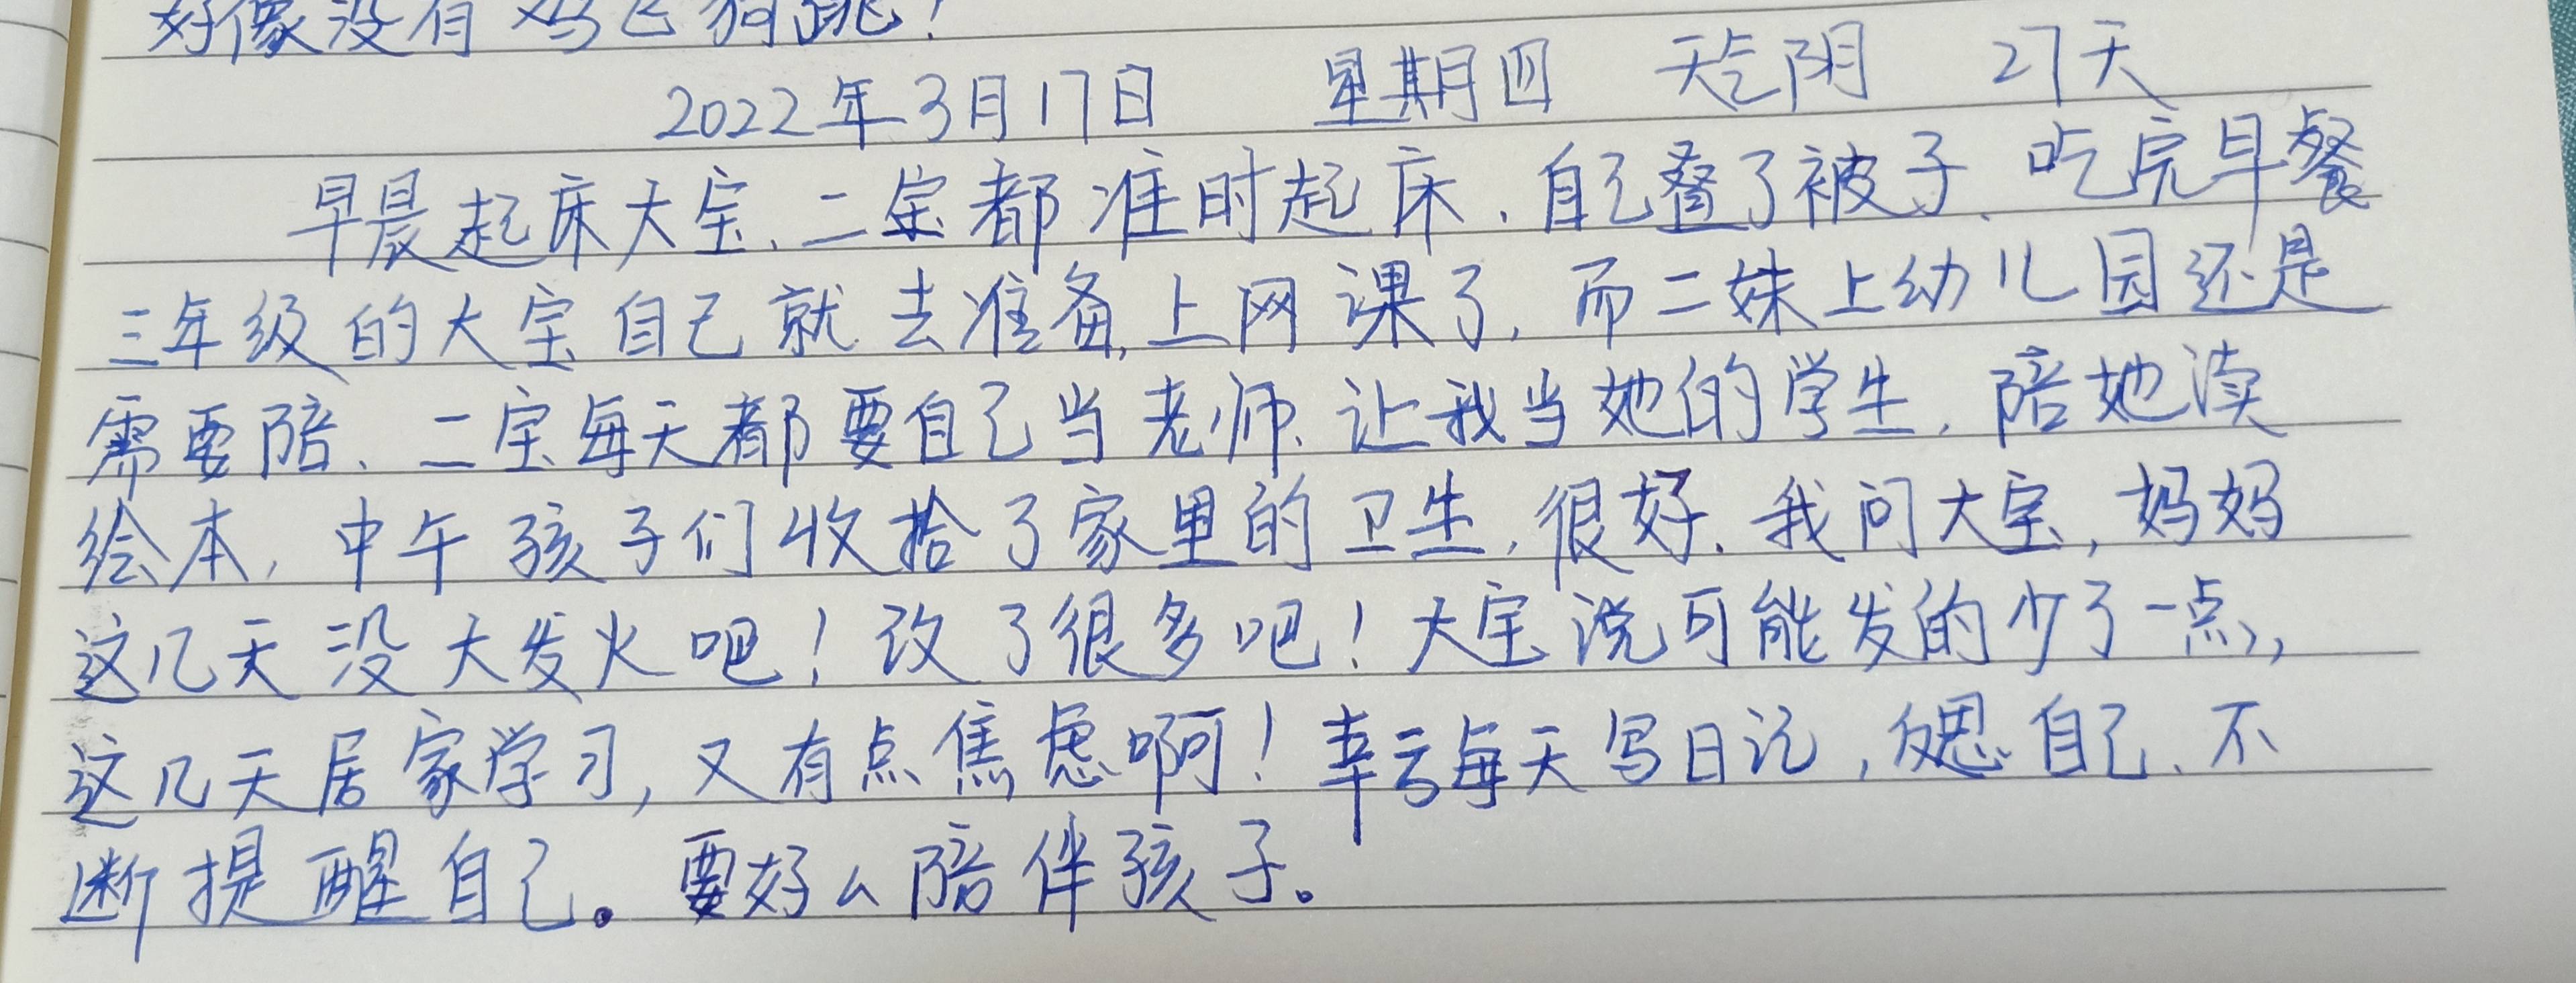 好像没有鸡飞狗跳！
2022年3月17日 星期四 天气阴 27天
早晨起床大宝、二宝都准时起床，自己叠了被子、吃完早餐
三年级的大宝自己就去准备上网课了，而二妹上幼儿园还是
需要陪、二宝每天都要自己当老师、让我当她的学生，陪她读
绘本，中午孩子们收拾了家里的卫生，很好，我问大宝，妈妈
这几天没大发火吧！改了很多吧！大宝说可能发的少了一点，
这几天居家学习，又有点焦虑啊！幸亏每天写日记，反思自己、不
断提醒自己。要好々陪伴孩子。